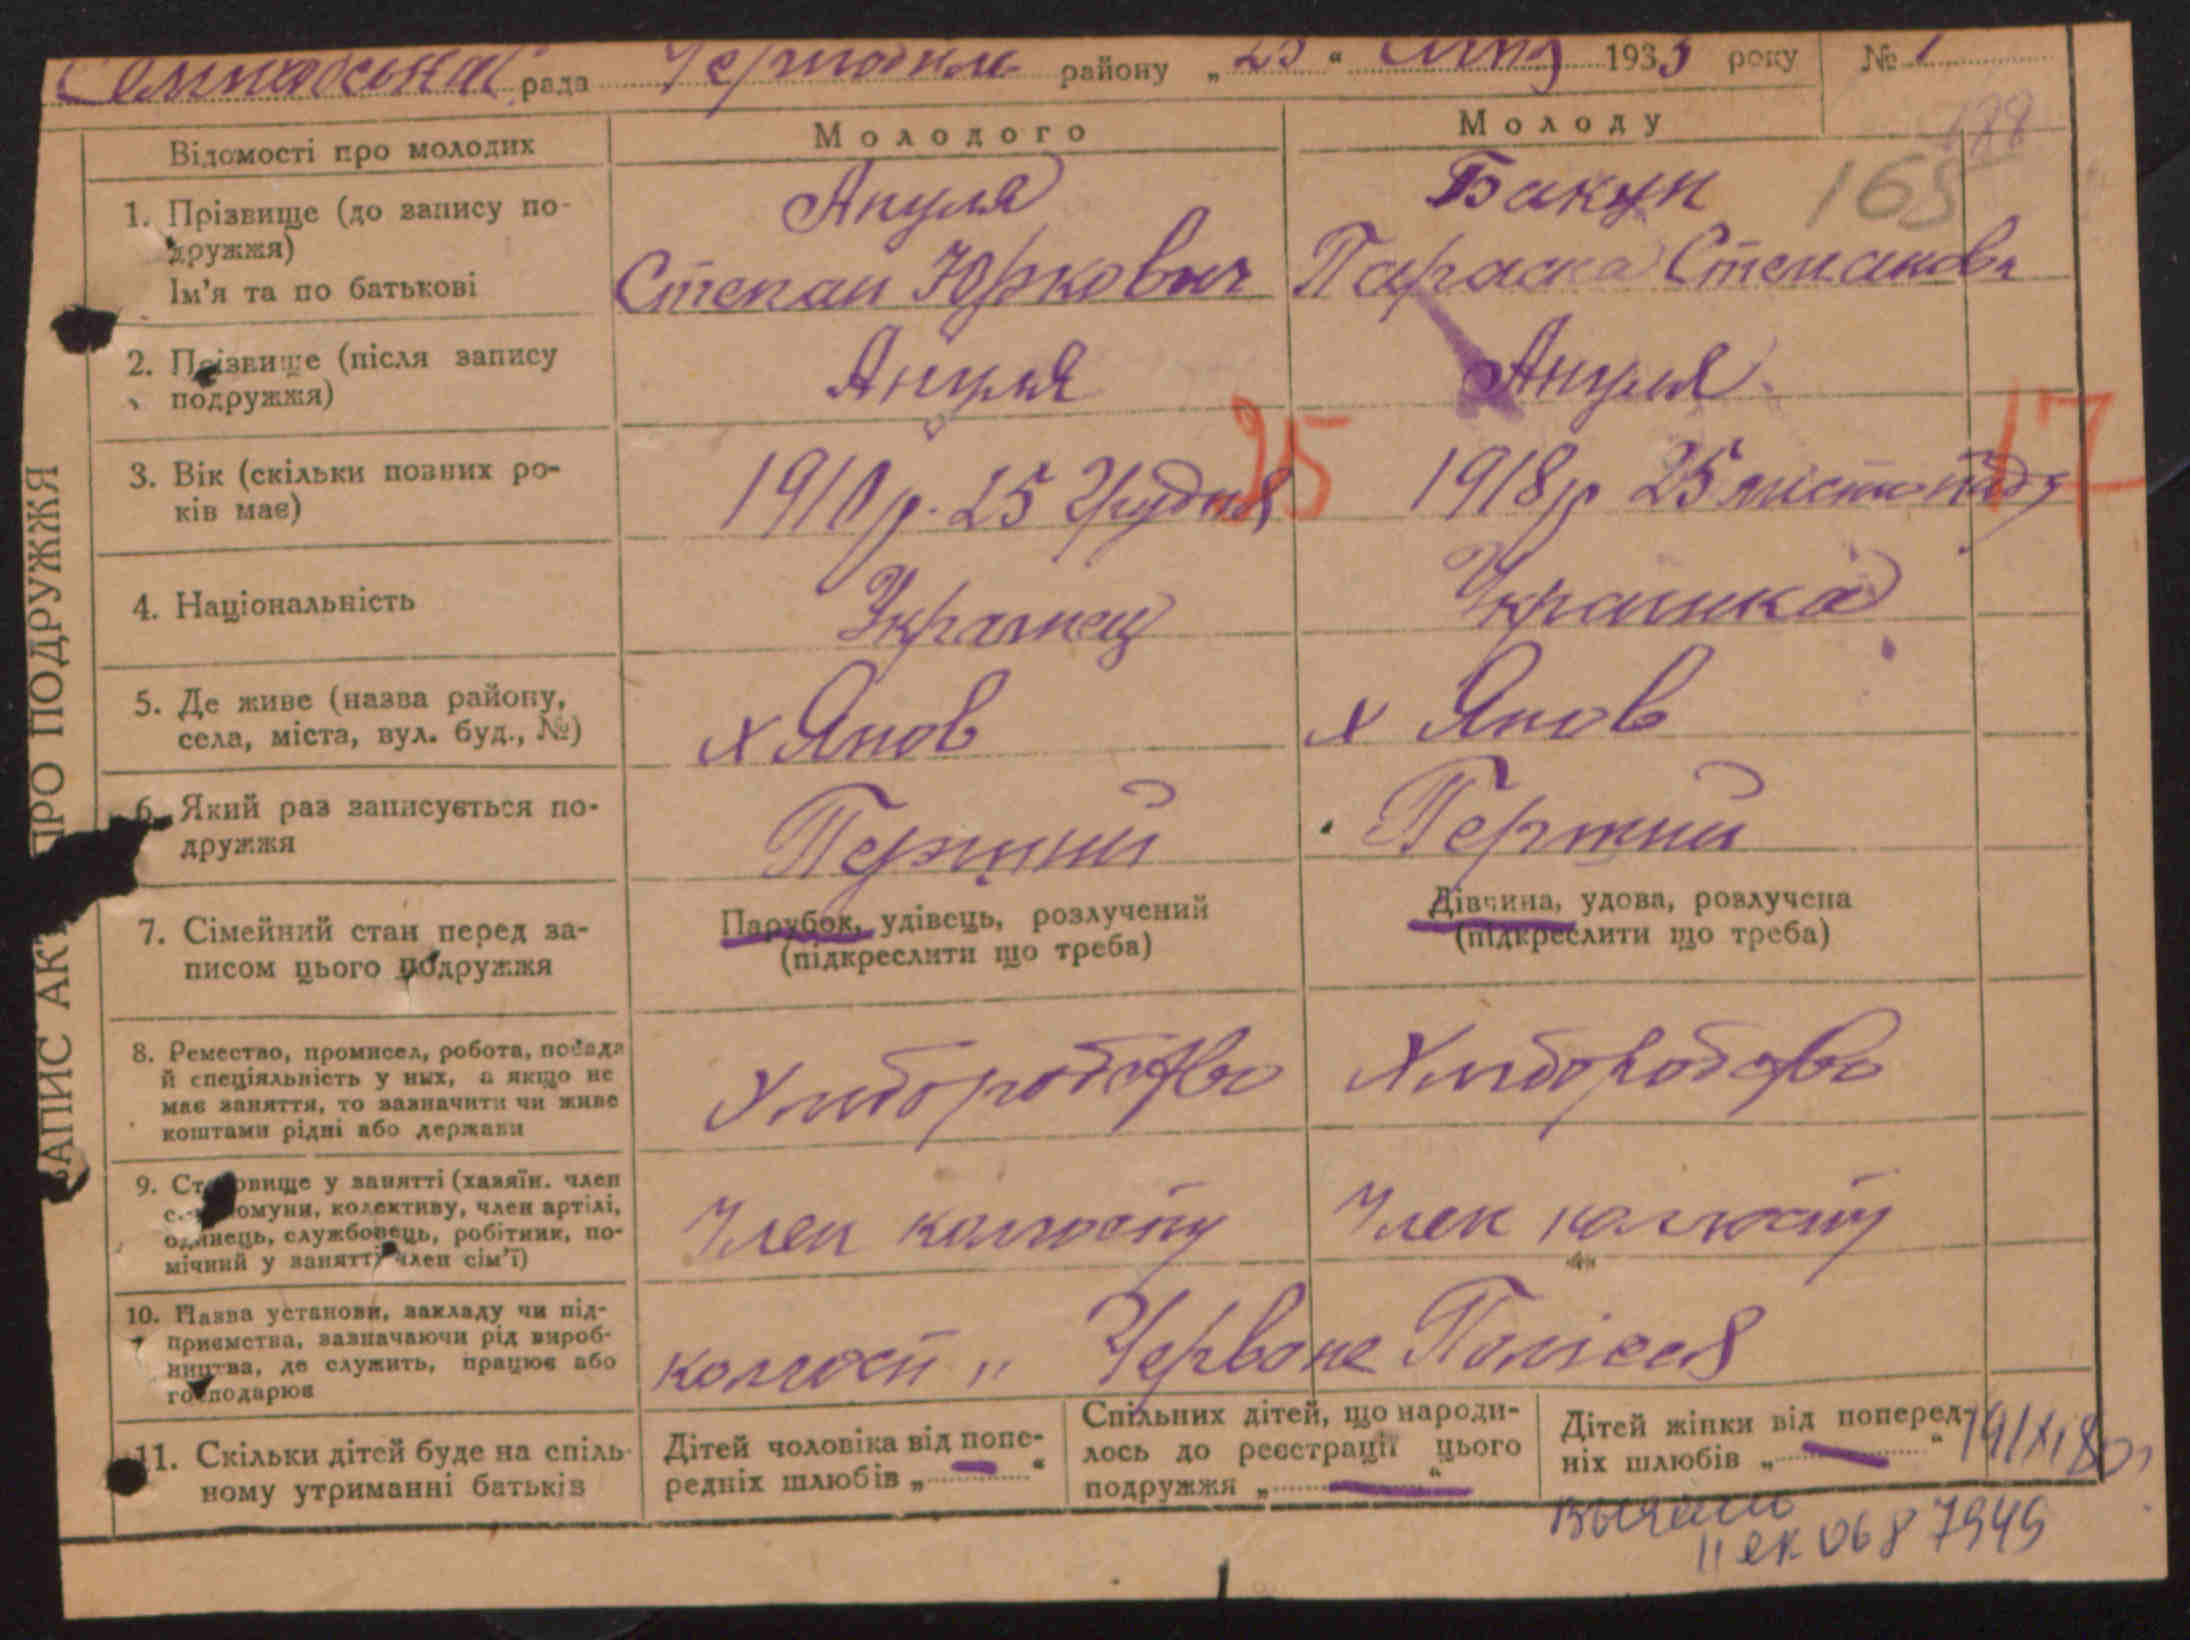 рада района району „ 25 “ 1935 року № 1
188
Відомості про молодих Молодого Молоду
165
1. Прізвище (до запису по-
дружжя)
Ім'я та по батькові
Ануля
Степан Юркович
Бакун
Параска Степановн
2. Прізвище (після запису
подружжя)
Ануля
Ануля
3. Вік (скільки повних ро-
ків має)
1910 р. 25 Грудня
25
1918 р 25 листопаду
17
4. Національність
Украінец
Украинка
5. Де живе (назва району,
села, міста, вул. буд., №)
х Янов
х Янов
6. Який раз записується по-
дружжя
Перший
Перший
7. Сімейний стан перед за-
писом цього подружжя
Парубок, удівець, розлучений
(підкреслити що треба)
Дівчина, удова, розлучена
(підкреслити що треба)
8. Ремество, промисел, робота, посада
й спеціяльність у них, а якщо не
має заняття, то зазначити чи живе
коштами рідні або держави
Хліборобство
Хліборобство
9. Становище у занятті (хазяїн. член
комуни, колективу, член артілі,
одинець, службовець, робітник, по-
мічний у занятті член сім'ї)
Член колгоспу
Член колгоспу
10. Назва установи, закладу чи під-
приємства, зазначаючи рід вироб-
ництва, де служить, працює або
господарює
колгосп „ Червоне Полісся
11. Скільки дітей буде на спіль-
ному утриманні батьків
Дітей чоловіка від попе-
редніх шлюбів „ — “
Спільних дітей, що народи-
лось до реєстрації цього
подружжя „ — “
Дітей жінки від поперед-
ніх шлюбів „ — “
19/XI 80
II ЕК 0687949
ЗАПИС АКТ ПРО ПОДРУЖЖЯ